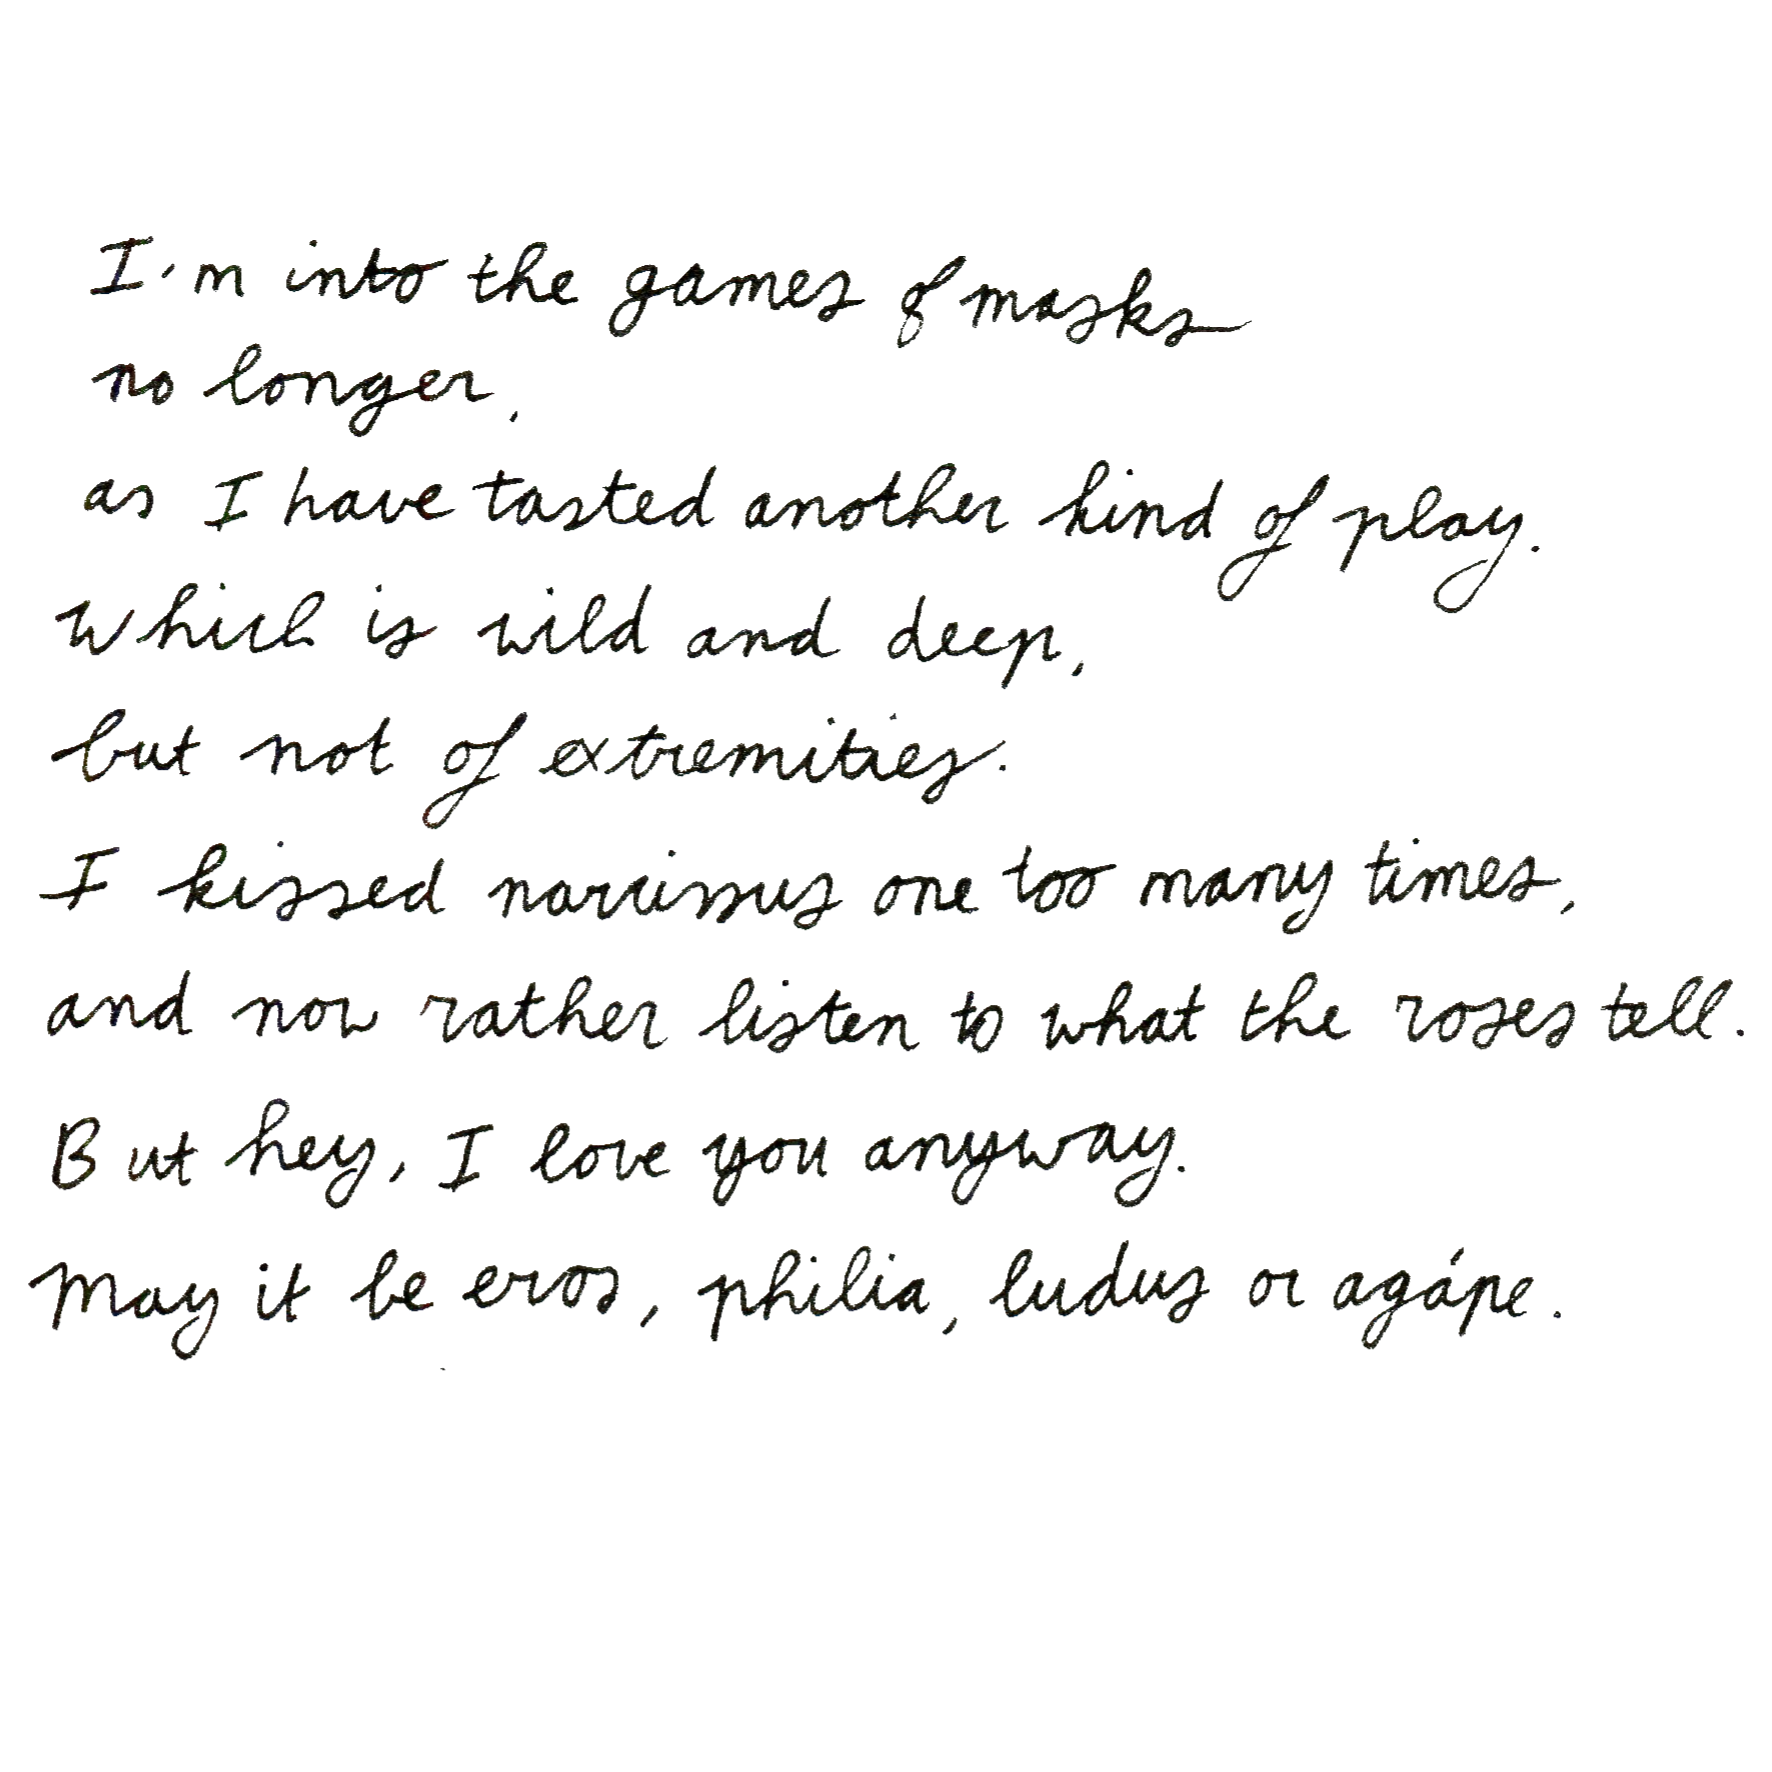 I'm into the games of masks
no longer,
as I have tasted another kind of play.
Which is wild and deep,
but not of extremities.
I kissed narcissus one too many times,
and now rather listen to what the roses tell.
But hey, I love you anyway.
May it be eros, philia, ludus or agápe.